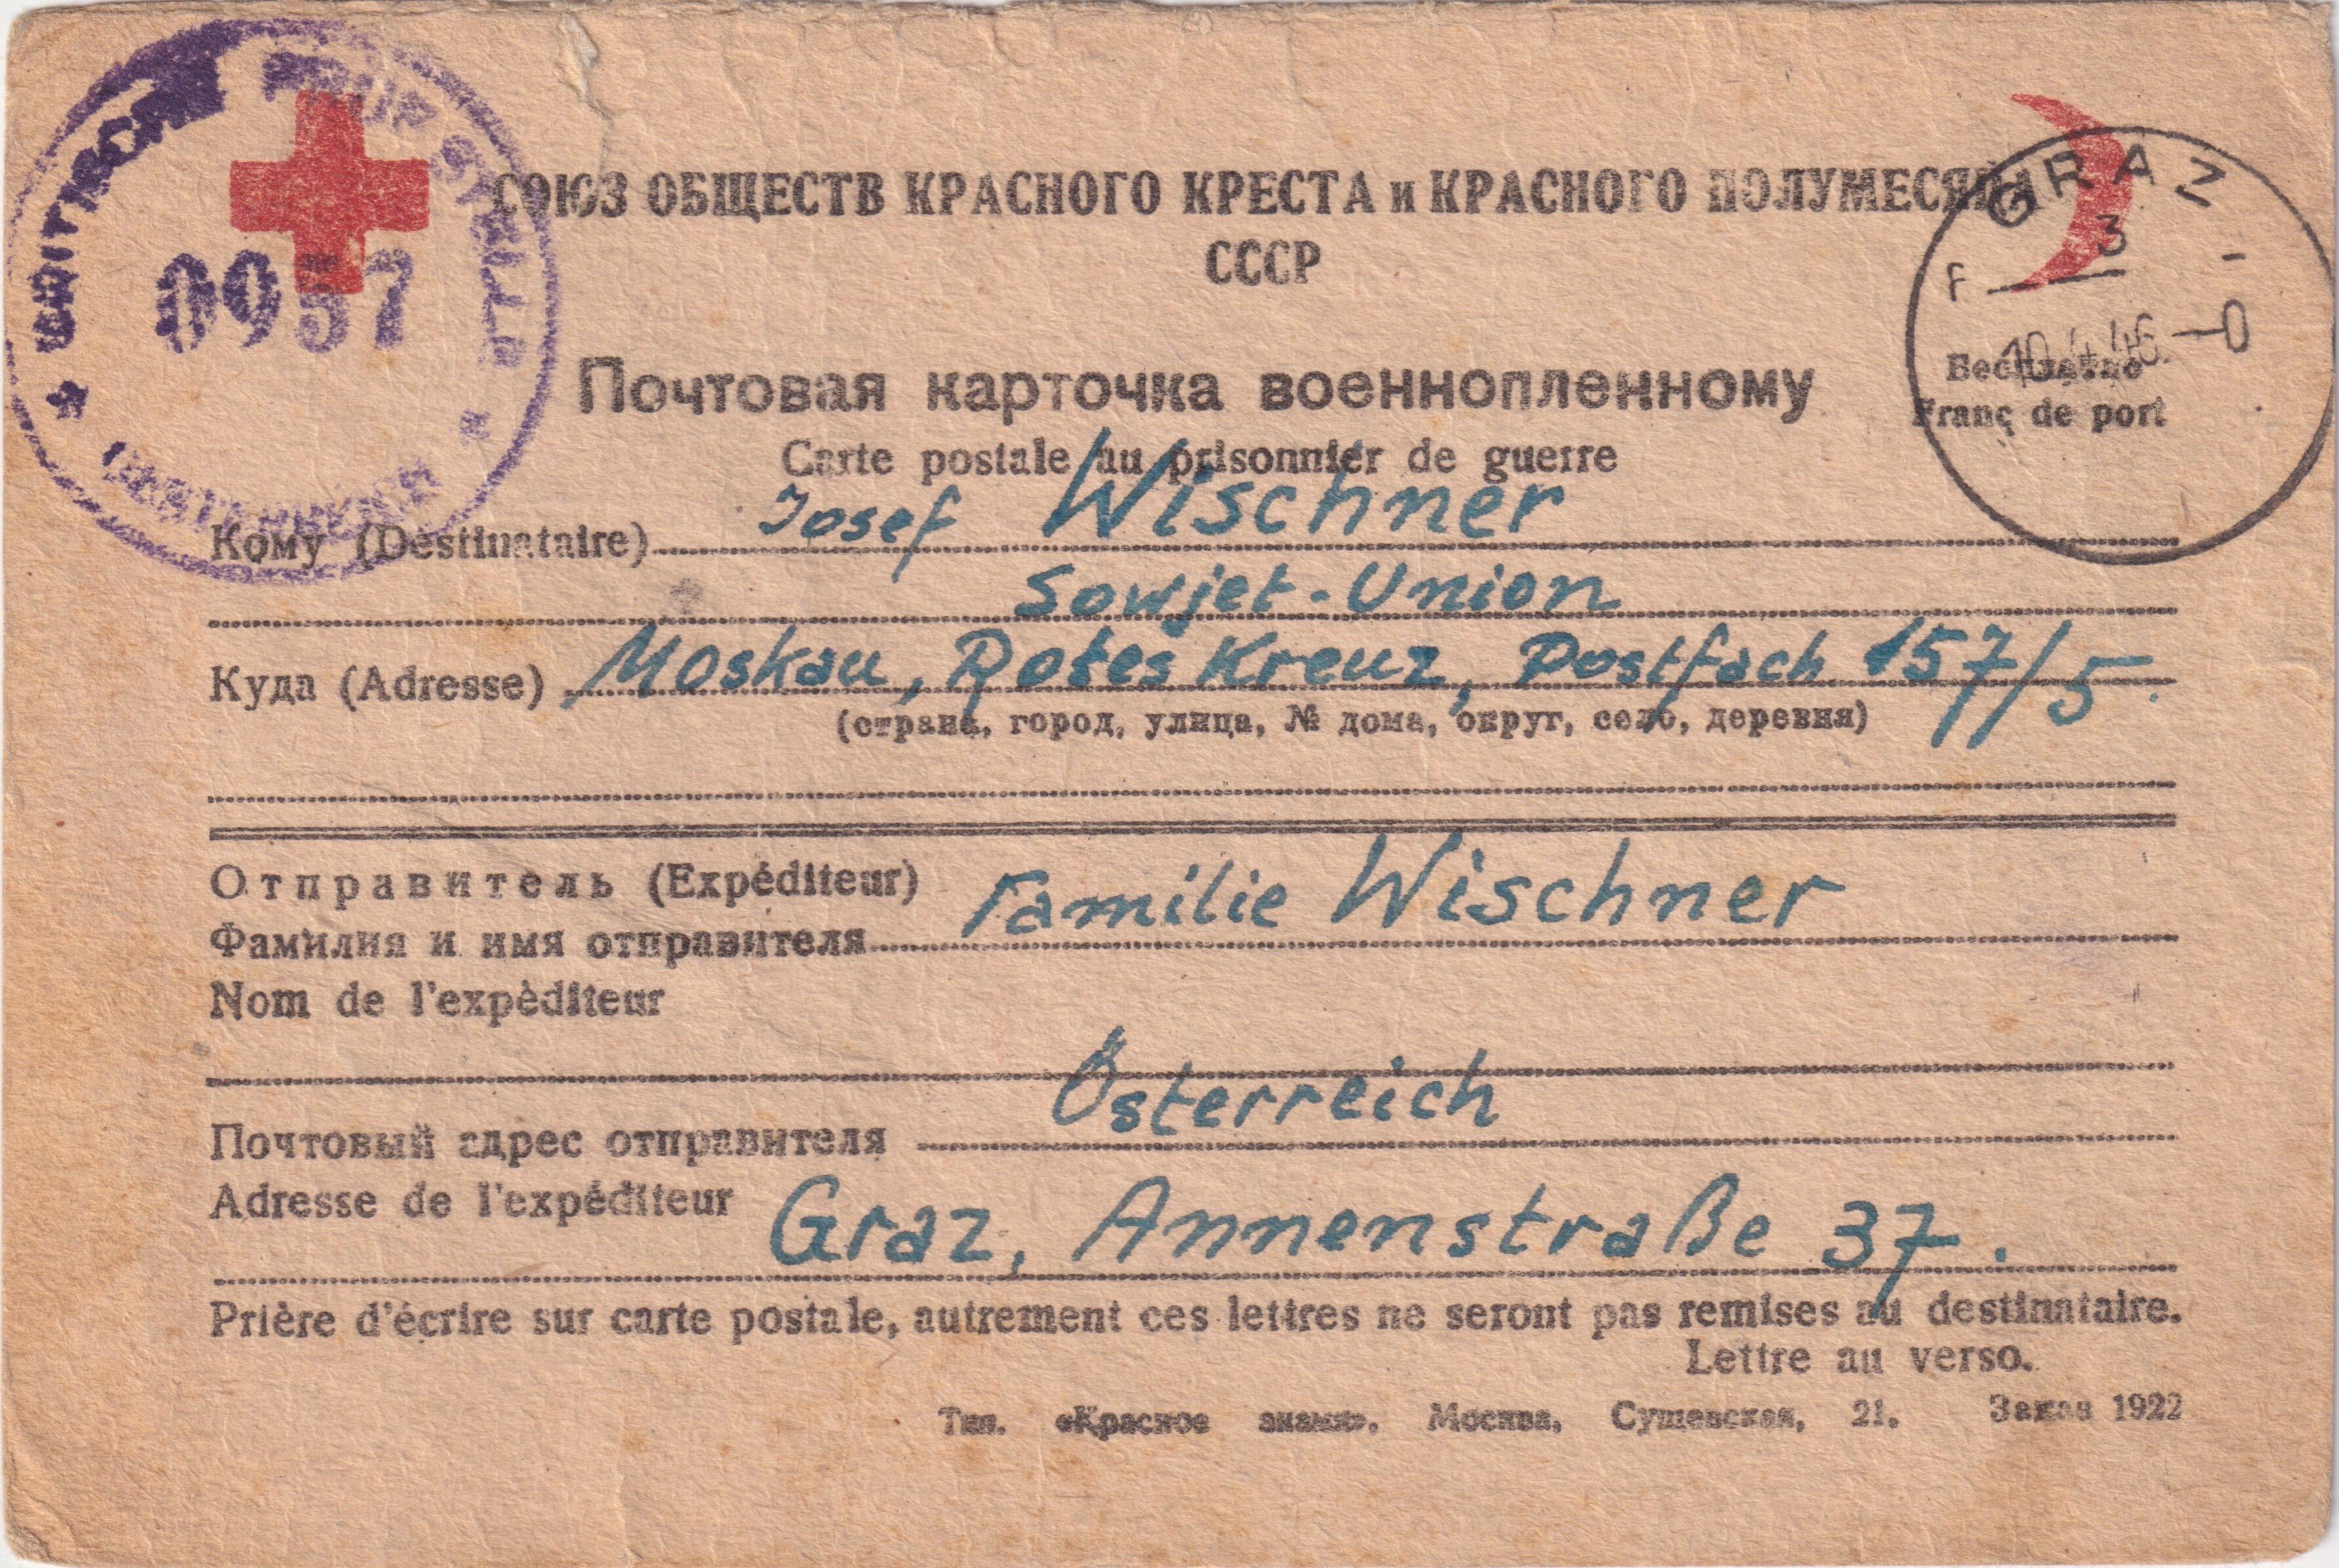 0957
СОЮЗ ОБЩЕСТВ КРАСНОГО КРЕСТА и КРАСНОГО ПОЛУМЕСЯЦА
СССР
GRAZ
3
F
10.4.46
Почтовая карточка военнопленному
Бесплатно
Franç de port
Carte postale au prisonnier de guerre
Кому (Destinataire) Josef Wischner
Sowjet-Union
Куда (Adresse) Moskau, Rotes Kreuz, Postfach 157/5.
(страна, город, улица, № дома, округ, село, деревня)
Отправитель (Expéditeur)
Фамилия и имя отправителя Familie Wischner
Nom de l'expèditeur
Österreich
Почтовый адрес отправителя
Adresse de l'expéditeur Graz, Annenstraße 37.
Prière d'écrire sur carte postale, autrement ces lettres ne seront pas remises au destinataire.
Lettre au verso.
Тип. «Красное знамя», Москва, Сущевская, 21. Заказ 1922